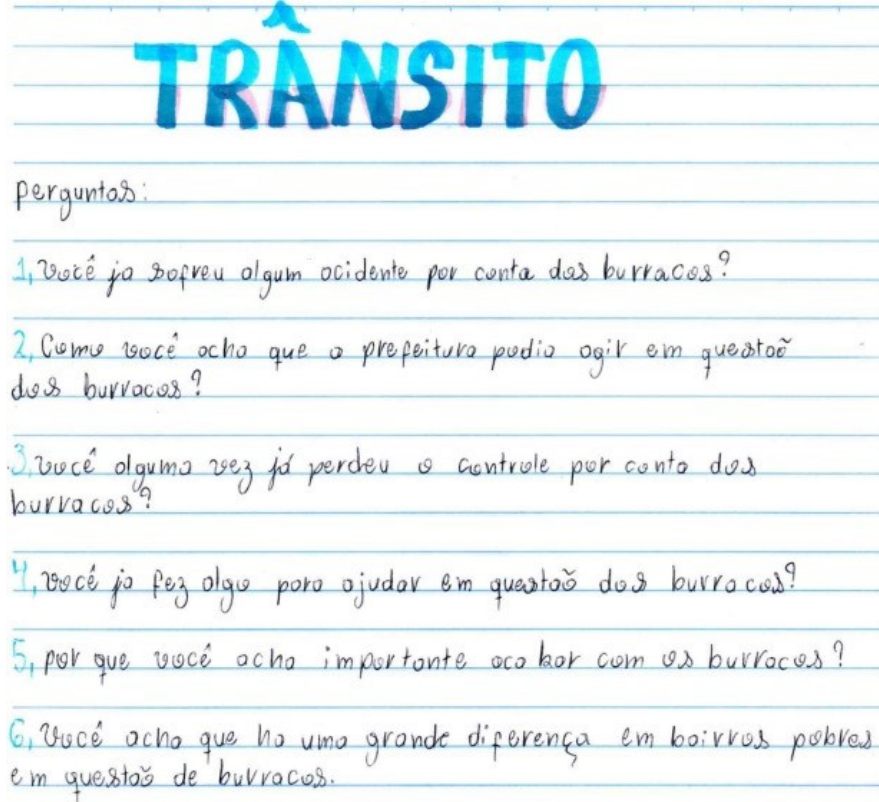 TRÂNSITO
perguntas:
1, Você ja sofreu algum acidente por conta dos burracos?
2, Como você acha que a prefeitura podia agir em questoõ
dos burracos?
3, você alguma vez já perdeu o controle por conta dos
burracos?
4, você ja fez algo para ajudar em questoõ dos burracos?
5, por que você acha importante acabar com os burracos?
6, Você acha que ha uma grande diferença em bairros pobres
em questoõ de burracos.